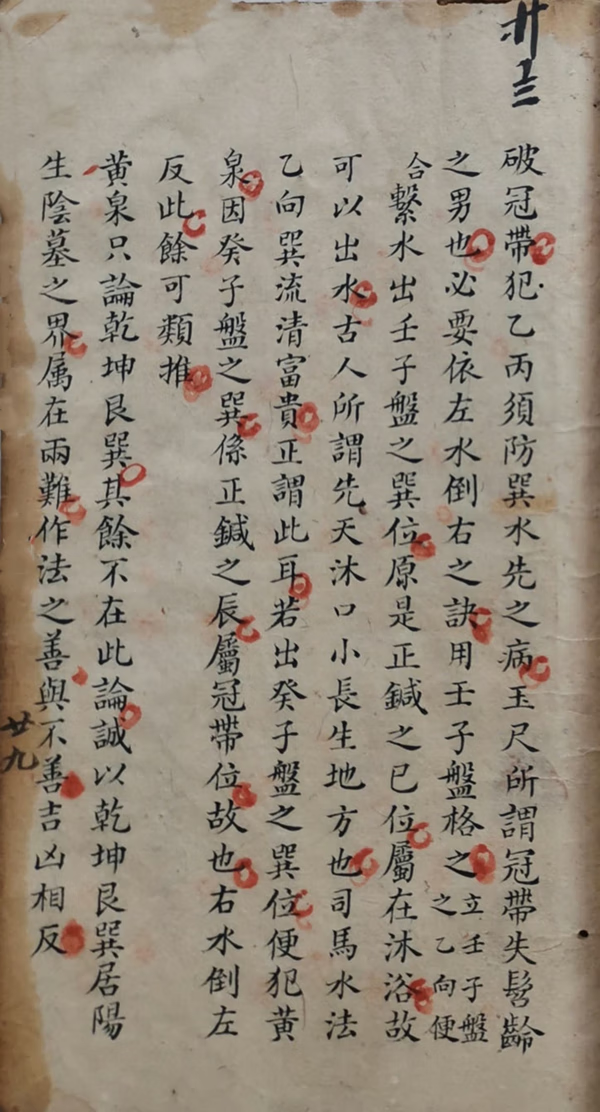 廿三
破冠帶犯乙丙須防巽水先之病玉尺所謂冠帶失髫齡
之男也必要依左水倒右之訣用壬子盤格之立壬子盤之乙向便
合繫水出壬子盤之巽位原是正鍼之巳位屬在沐浴故
可以出水古人所謂先天沐口小長生地方也司馬水法
乙向巽流清富貴正謂此耳若出癸子盤之巽位便犯黃
泉因癸子盤之巽係正鍼之辰屬冠帶位故也右水倒左
反此餘可類推
黃泉只論乾坤艮巽其餘不在此論誠以乾坤艮巽居陽
生陰墓之界属在兩難作法之善與不善吉凶相反
廿九